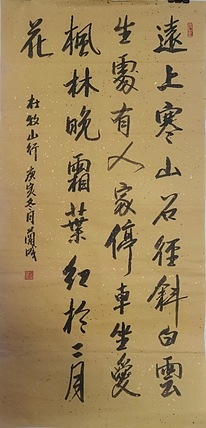 遠上寒山石徑斜白雲
生處有人家停車坐愛
楓林晚霜葉紅於二月
花
杜牧山行 庚寅冬月